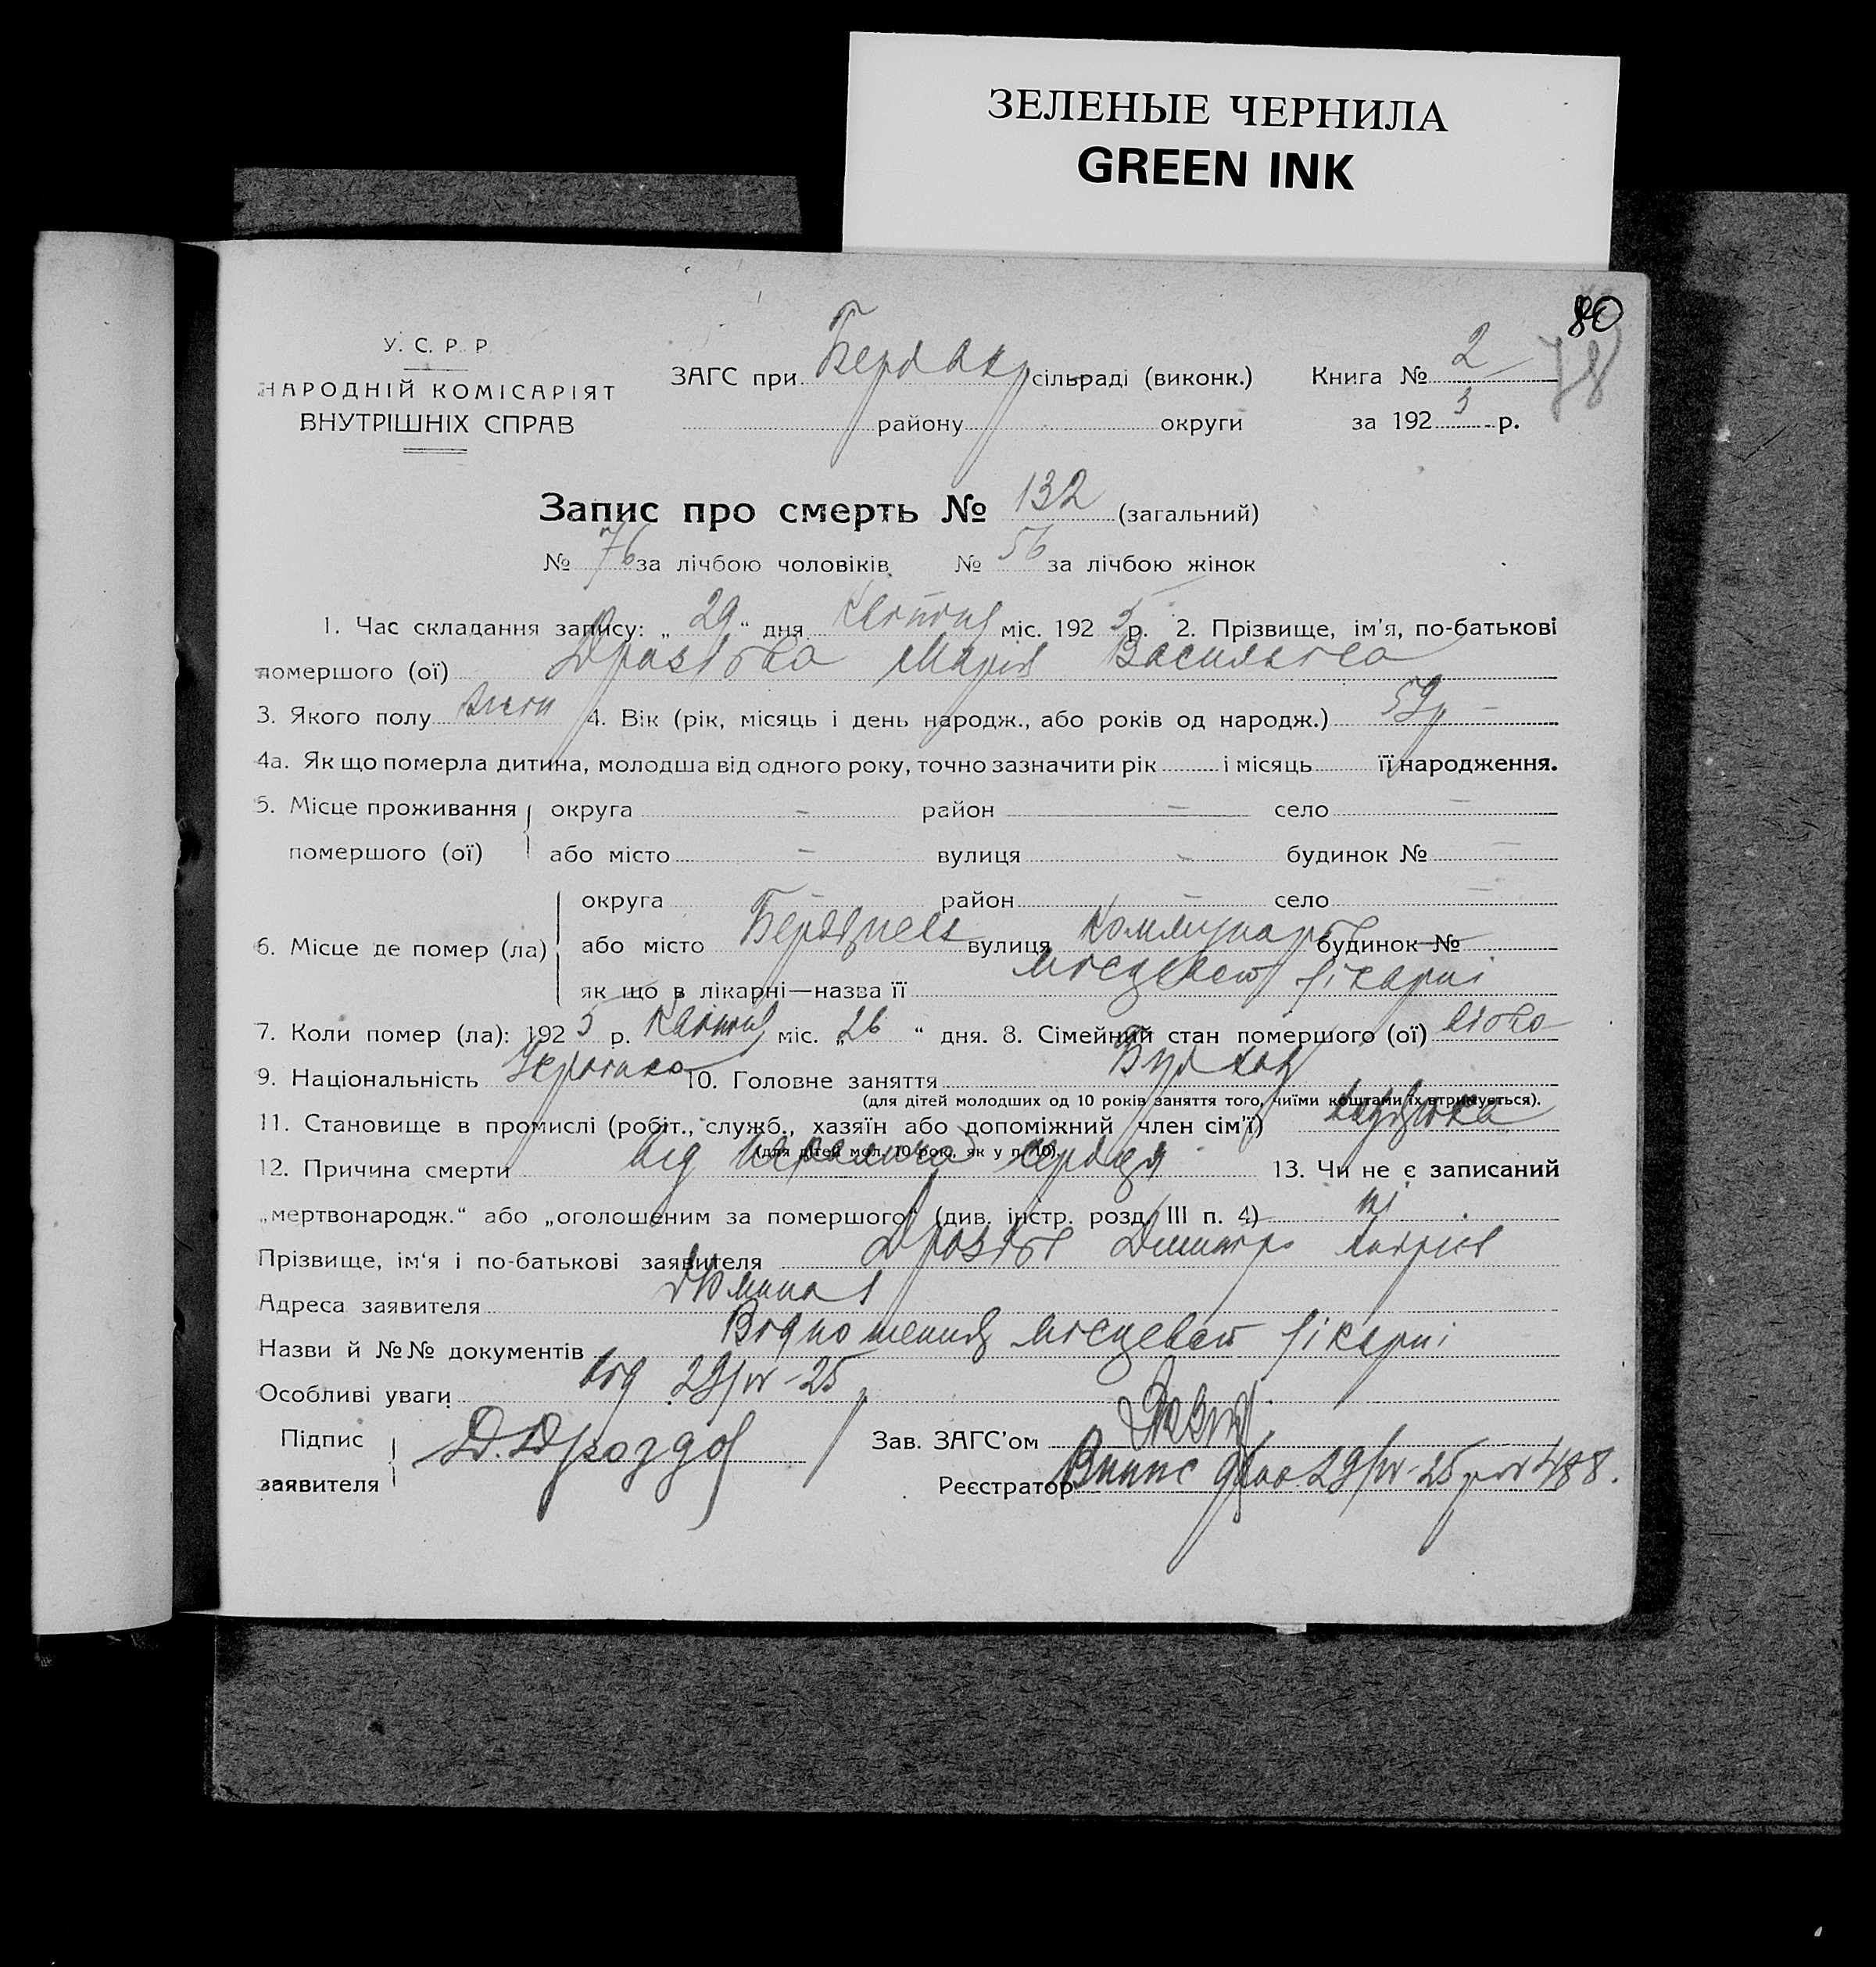 ЗЕЛЕНЫЕ ЧЕРНИЛА
GREEN INK
80
78
У. С. Р. Р.
НАРОДНІЙ КОМІСАРІЯТ
ВНУТРІШНІХ СПРАВ
ЗАГС при сільраді (виконк.) Книга № 2
району округи за 1925 р.
Запис про смерть № 132 (загальний)
№ 76 за лічбою чоловіків № 56 за лічбою жінок
1. Час складання запису: „ 29 “ дня Квітня міс. 1925 р. 2. Прізвище, ім'я, по-батькові
помершого (ої) Дроздова Марія Васильєва
3. Якого полу 4. Вік (рік, місяць і день народж., або років од народж.) 59 р –
4а. Як що померла дитина, молодша від одного року, точно зазначити рік і місяць її народження.
5. Місце проживання округа – район – село –
помершого (ої) або місто – вулиця – будинок № –
округа – район – село –
6. Місце де помер (ла) або місто вулиця будинок №
як що в лікарні—назва її місцевої лікарні
7. Коли помер (ла): 1925 р. Квітня міс. „ 26 “ дня. 8. Сімейний стан помершого (ої) вдова
9. Національність 10. Головне заняття
(для дітей молодших од 10 років заняття того, чиїми коштами їх втримується).
11. Становище в промислі (робіт., служб., хазяїн або допоміжний член сім'ї)
(для дітей мол. 10 рок., як у п. 10).
12. Причина смерти від паралича сердця 13. Чи не є записаний
„мертвонародж.“ або „оголошеним за помершого“ (див. інстр. розд. III п. 4) ні
Прізвище, ім'я і по-батькові заявителя Дроздов Дмитро
Адреса заявителя
Назви й №№ документів Відношення місцевої лікарні
Особливі уваги від 29/IV-25 р
Підпис Зав. ЗАГС'ом
заявителя Д. Дроздов Реєстратор Випис 29/IV-25 р № 488.